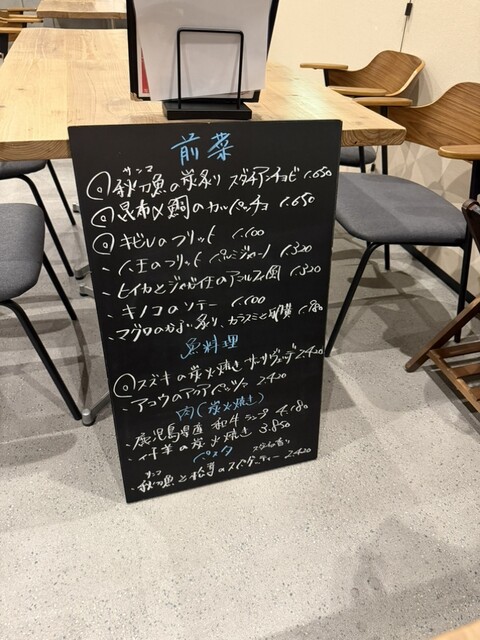 前菜
サンマ
◎秋刀魚の炭炙り スダチアンチョビ 1.650
◎昆布〆鯛のカルパッチョ 1.650
◎キビレのフリット 1.100
・ハモのフリット 1.320
・ヒイカとじゃが芋のアマルフィ風 1.320
・キノコのソテー 1.100
・マグロの 炙り、カラスミと 1.980
魚料理
◎スズキの炭火焼き サルサヴェルデ 2.420
・アコウのアクアパッツァ 2.420
肉(炭火焼き)
・鹿児島県産 和牛ランプ 4.180
・仔羊の炭火焼き 3.850
パスタ
サンマ
・秋刀魚と松茸のスパゲッティー 2.420